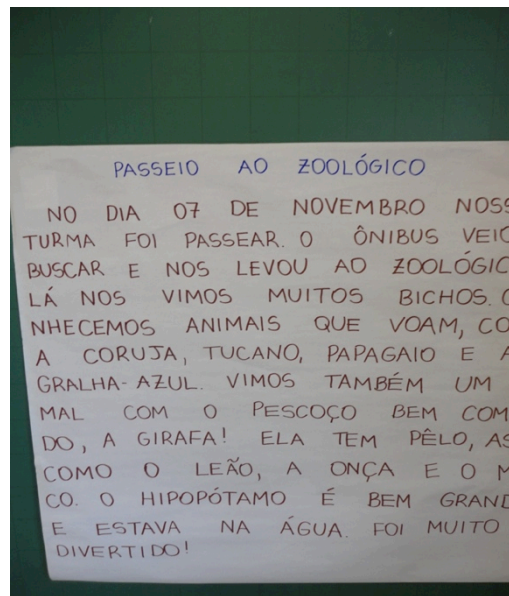 PASSEIO AO ZOOLÓGICO
NO DIA 07 DE NOVEMBRO NOSS
TURMA FOI PASSEAR. O ÔNIBUS VEIO
BUSCAR E NOS LEVOU AO ZOOLÓGIC
LÁ NOS VIMOS MUITOS BICHOS. C
NHECEMOS ANIMAIS QUE VOAM, CO
A CORUJA, TUCANO, PAPAGAIO E A
GRALHA-AZUL. VIMOS TAMBÉM UM
MAL COM O PESCOÇO BEM COM
DO, A GIRAFA! ELA TEM PÊLO, AS
COMO O LEÃO, A ONÇA E O M
CO. O HIPOPÓTAMO É BEM GRAND
E ESTAVA NA ÁGUA. FOI MUITO
DIVERTIDO!